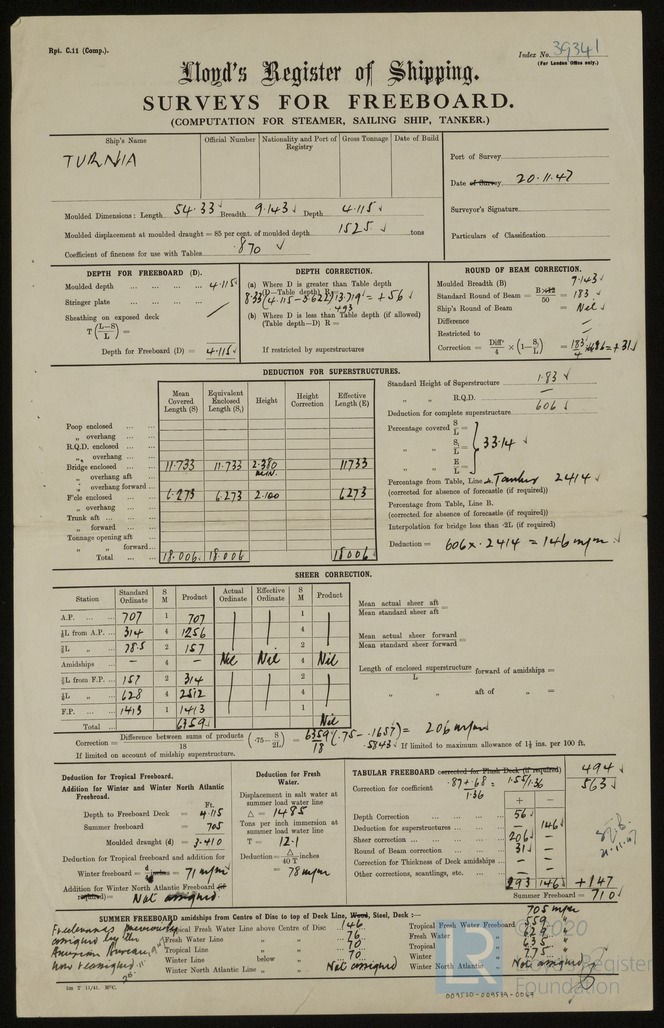 Rpt. C.11 (Comp.).
Index No. 39341
(For London Office only.)
Lloyd's Register of Shipping.
SURVEYS FOR FREEBOARD.
(COMPUTATION FOR STEAMER, SAILING SHIP, TANKER.)
Ship's Name Official Number Nationality and Port of Registry Gross Tonnage Date of Build
TURNIA
Port of Survey
Date of Survey 20.11.47
Surveyor's Signature
Particulars of Classification
Moulded Dimensions: Length 54.33 Breadth 9.143 Depth 4.115
Moulded displacement at moulded draught = 85 per cent. of moulded depth 1525 tons
Coefficient of fineness for use with Tables .870
DEPTH FOR FREEBOARD (D).
Moulded depth 4.115
Stringer plate
Sheathing on exposed deck
T (L-S/L) =
Depth for Freeboard (D) = 4.115
DEPTH CORRECTION.
(a) Where D is greater than Table depth
(D—Table depth) R =
8.33(4.115 - 3.622)13.719 = +56
.493
(b) Where D is less than Table depth (if allowed)
(Table depth—D) R =
If restricted by superstructures
ROUND OF BEAM CORRECTION.
Moulded Breadth (B) 9.143
Standard Round of Beam = B×12/50 = 183
Ship's Round of Beam = Nil
Difference
Restricted to
Correction = Diff/4 × (1-S₁/L) = 183/4 × .686 = +31
DEDUCTION FOR SUPERSTRUCTURES.
Mean Covered Length (S) Equivalent Enclosed Length (S₁) Height Height Correction Effective Length (E)
Poop enclosed
„ overhang
R.Q.D. enclosed
„ overhang
Bridge enclosed 11.733 11.733 2.380 min. 11.733
„ overhang aft
„ overhang forward
F'cle enclosed 6.273 6.273 2.100 6.273
„ overhang
Trunk aft
„ forward
Tonnage opening aft
„ „ forward
Total 18.006 18.006 18.006
Standard Height of Superstructure 1.83
„ „ R.Q.D. —
Deduction for complete superstructure 606
Percentage covered S/L =
„ „ S₁/L = 33.14
„ „ E/L =
Percentage from Table, Line Tanker 24.14
(corrected for absence of forecastle (if required))
Percentage from Table, Line B.
(corrected for absence of forecastle (if required))
Interpolation for bridge less than ·2L (if required)
Deduction = 606 × .2414 = 146 m/m
SHEER CORRECTION.
Station Standard Ordinate S M Product Actual Ordinate Effective Ordinate S M Product
A.P. 707 1 707 1
⅙L from A.P. 314 4 1256 4
⅓L „ 78.5 2 157 2
Amidships — 4 — Nil Nil 4 Nil
⅓L from F.P. 157 2 314 2
⅙L „ 628 4 2512 4
F.P. 1413 1 1413 1
Total 6359 Nil
Mean actual sheer aft
Mean standard sheer aft =
Mean actual sheer forward
Mean standard sheer forward =
Length of enclosed superstructure/L forward of amidships =
„ aft of „ =
Correction = Difference between sums of products/18 (·75 - S/2L) = 6359/18 (.75 - .1657) = 206 m/m
.5843
If limited on account of midship superstructure.
If limited to maximum allowance of 1½ ins. per 100 ft.
Deduction for Tropical Freeboard.
Addition for Winter and Winter North Atlantic Freeboard.
Ft.
Depth to Freeboard Deck = 4.115
Summer freeboard = 705
Moulded draught (d) = 3.410
Deduction for Tropical freeboard and addition for
Winter freeboard = d/4 inches = 71 m/m
Addition for Winter North Atlantic Freeboard (if required) = Not assigned.
Deduction for Fresh Water.
Displacement in salt water at summer load water line
Δ = 1485
Tons per inch immersion at summer load water line
T = 12.1
Deduction = Δ/40 T inches
= 78 m/m
TABULAR FREEBOARD corrected for Flush Deck (if required) 494
Correction for coefficient .87 + .68/1.36 = 1.55/1.36 563
+ —
Depth Correction 56
Deduction for superstructures — 146
Sheer correction 206 —
Round of Beam correction 31 —
Correction for Thickness of Deck amidships — —
Other corrections, scantlings, etc.
293 146 +147
Summer Freeboard = 710
21.11.47
705 m/m
SUMMER FREEBOARD amidships from Centre of Disc to top of Deck Line, Wood, Steel, Deck:—
Freeboards previously
assigned by the
American Bureau,
now reassigned.
Tropical Fresh Water Line above Centre of Disc 146
Fresh Water Line „ „ 76
Tropical Line „ „ 70
Winter Line below „ 70
Winter North Atlantic Line „ „ Not assigned
Tropical Fresh Water Freeboard 559
Fresh Water „ 629
Tropical „ 635
Winter „ 775
Winter North Atlantic „ Not assigned
2m T 11/41. MPC.
LR
© 2020
Lloyd's Register
Foundation
009580-009589-0069